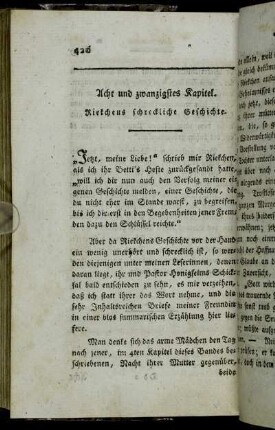 426
Acht und zwanzigstes Kapitel.
Riekchens schreckliche Geschichte.
„Jetzt, meine Liebe!“ schrieb mir Riekchen,
als ich ihr Dotti's Hefte zurückgesandt hatte,
„will ich dir nun auch den Verfolg meiner ei=
genen Geschichte melden, einer Geschichte, die
du nicht eher im Stande warst, zu begreifen,
bis ich dir erst in den Begebenheiten jener Frem=
den dazu den Schlüssel reichte.“
Aber da Riekchens Geschichte vor der Hand
ein wenig unerhört und schrecklich ist, so werden
diejenigen unter meinen Leserinnen, denen
daran liege, ihr und Pastor Honigseims Schick=
sal bald entschieden zu sehn, es mir verzeihen,
daß ich statt ihrer das Wort nehme, und die
sehr Inhaltreichen Briefe meiner Freundinn
in einer blos summarischen Erzählung hier lie=
fere.
Man denke sich das arme Mädchen den Tag
nach jener, im 4ten Kapitel dieses Bandes be=
schriebenen, Nacht ihrer Mutter gegenüber,
beide